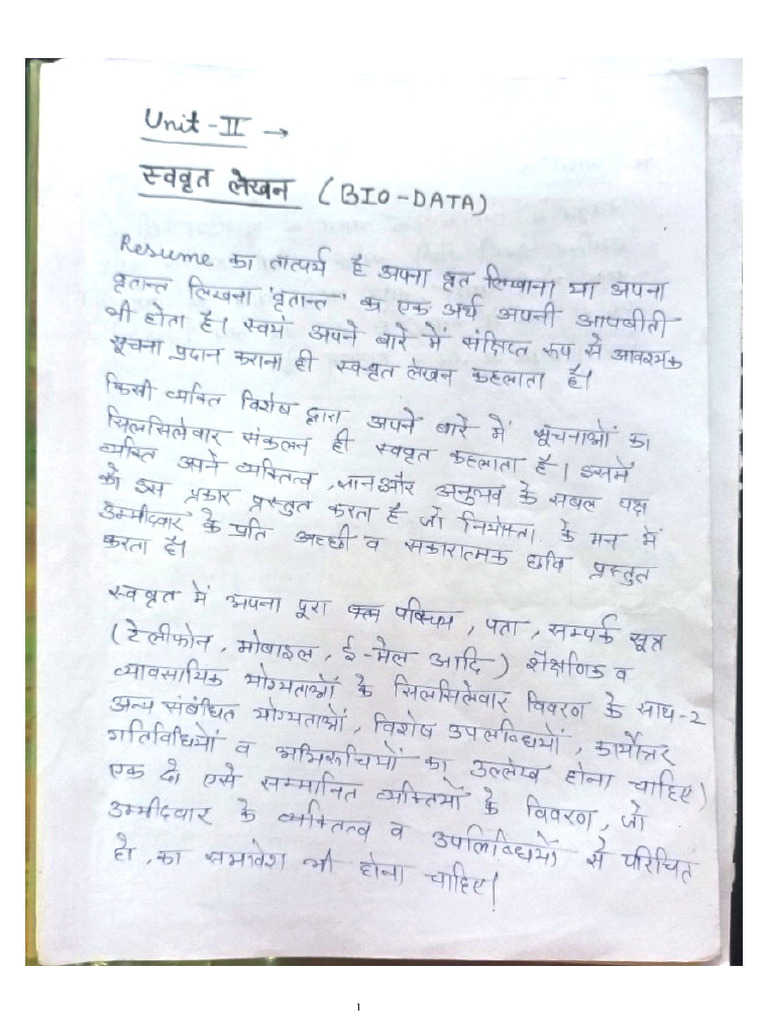 Unit-II →
स्ववृत लेखन (BIO-DATA)
Resume का तात्पर्य है अपना वृत लिखाना या अपना
वृतान्त लिखना "वृतान्त" का एक अर्थ अपनी आपबीती
भी होता है। स्वयं अपने बारे में संक्षिप्त रूप से आवश्यक
सूचना प्रदान कराना ही स्ववृत लेखन कहलाता है।
किसी व्यक्ति विशेष द्वारा अपने बारे में सूचनाओं का
सिलसिलेवार संकलन ही स्ववृत कहलाता है। इसमें
व्यक्ति अपने व्यक्तित्व, ज्ञान और अनुभव के सबल पक्ष
को इस प्रकार प्रस्तुत करता है जो नियोक्ता के मन में
उम्मीदवार के प्रति अच्छी व सकारात्मक छवि प्रस्तुत
करता है।
स्ववृत में अपना पूरा , पता, सम्पर्क सूत्र
(टेलीफोन, मोबाइल, ई-मेल आदि) शैक्षणिक व
व्यावसायिक योग्यताओं के सिलसिलेवार विवरण के साथ-2
अन्य संबंधित योग्यताओं, विशेष उपलब्धियों, कार्योत्तर
गतिविधियों व अभिरूचियों का उल्लेख होना चाहिए।
एक दो एसे सम्मानित व्यक्तियों के विवरण, जो
उम्मीदवार के व्यक्तित्व व उपलिब्धियों से परिचित
हो, का समावेश भी होना चाहिए।
1